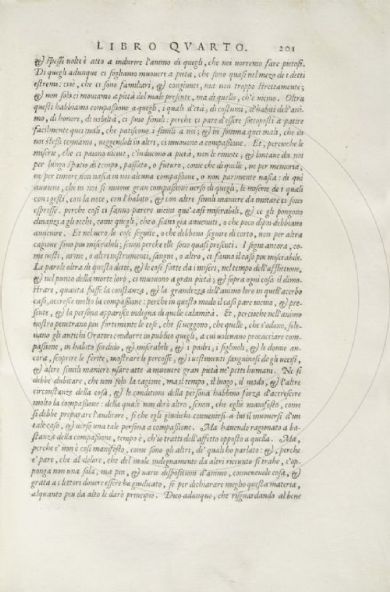 LIBRO QVARTO. 201
& spesse volte è atto a indurre l'animo di quegli, che noi vorremo fare pietosi.
Di quegli adunque ci sogliamo muovere a pietà, che sono quasi nel mezo de i detti
estremi: cioè, che ci sono familiari, & congiunti, ma non troppo strettamente;
& non solo ci moviamo a pietà del male presente, ma di quello, ch'è vicino. Oltra
questi habbiamo compassione a quegli, i quali d'età, di costumi, d'habiti dell'ani-
mo, di honore, di nobiltà, ci sono simili: perche ci pare d'essere sottoposti a patire
facilmente quei mali, che patiscono i simili a noi; & in somma quei mali, che in
noi stessi temiamo, veggendoli in altri, ci muovono a compassione. Et, percioche le
miserie, che ci paiono vicine, c'inducono a pietà, non le rimote; & lontane da noi
per lungo spatio di tempo, passato, o futuro, come che di quelle, ne per memoria;
ne per timore, non nasca in noi alcuna compassione, o non parimente nasca: di qui
aviene, che in noi si muove gran compassione verso di quegli, le miserie de i quali
con i gesti, con la voce, con l'habito, & con altre simili maniere da imitare ci sono
espresse. perche così ci fanno parere vicini que' casi miserabili, & ce gli pongono
dinanzi a gli occhi, come quegli, che o siano già avenuti, o che poco dipoi debbiano
avenire. Et nel vero le cose seguite, o che debbono seguire di corto, non per altra
cagione sono piu miserabili; senon perche elle sono quasi presenti. I segni ancora, co-
me vesti, arme, o altri instrumenti, sangue, o altro, ci fanno il caso piu miserabile.
La parole altra di questo dette, & le cose fatte da i miseri, nel tempo dell'afflittione,
& nel punto della morte loro, ci muovono a gran pietà; & sopra ogni cosa il dimo-
strare, quanta fusse la constanza, & la grandezza dell'animo loro in quell'acerbo
caso, accresce molto la compassione: perche in questo modo il caso pare vicino, & pre-
sente, & la persona apparisce indegna di quelle calamità. Et, percioche nell'animo
nostro penetrano piu fortemente le cose, che si veggono, che quelle, che s'odono, sole-
vano gli antichi Oratori condurre in publico quegli, a cui volevano procacciare com-
passione, in habito sordido, & miserabile, & i padri, i figliuoli, & le donne an-
cora, scoprire le ferite, mostrare le percosse, & i vestimenti sanguinosi de gli uccisi,
& altre simili maniere usare atte a muovere gran pietà ne' petti humani. Ne si
debbe dubitare, che non solo la cagione, ma il tempo, il luogo, il modo, & l'altre
circonstanze della cosa, & le conditioni della persona habbino forza d'accrescere
molto la compassione: della quale non dirò altro, senon, che egli è manifesto, come
si debbe preparar l'uditore, si che egli giudichi convenirsi a lui il muoversi d'un
tale caso, & verso una tale persona a compassione. Ma havendo ragionato a ba-
stanza della compassione, tempo è, ch'io tratti dell'affetto opposto a quella. Ma,
perche e' non è così manifesto, come sono gli altri, di quali ho parlato: &, perche
e' pare, che al dolore, che del male indegnamente da altri ricevuto si trahe, s'op-
ponga non una sola; ma piu, & varie dispositioni d'animo, convenevole cosa, &
grata a i lettori dovere essere ho giudicato, se per dichiarare meglio questa materia,
alquanto piu da alto le darò principio. Dico adunque, che risguardando al bene